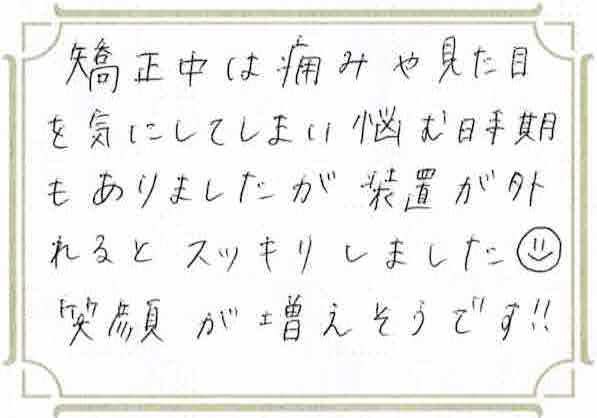 矯正中は痛みや見た目
を気にしてしまい悩む時期
もありましたが装置が外
れるとスッキリしました☺
笑顔が増えそうです!!